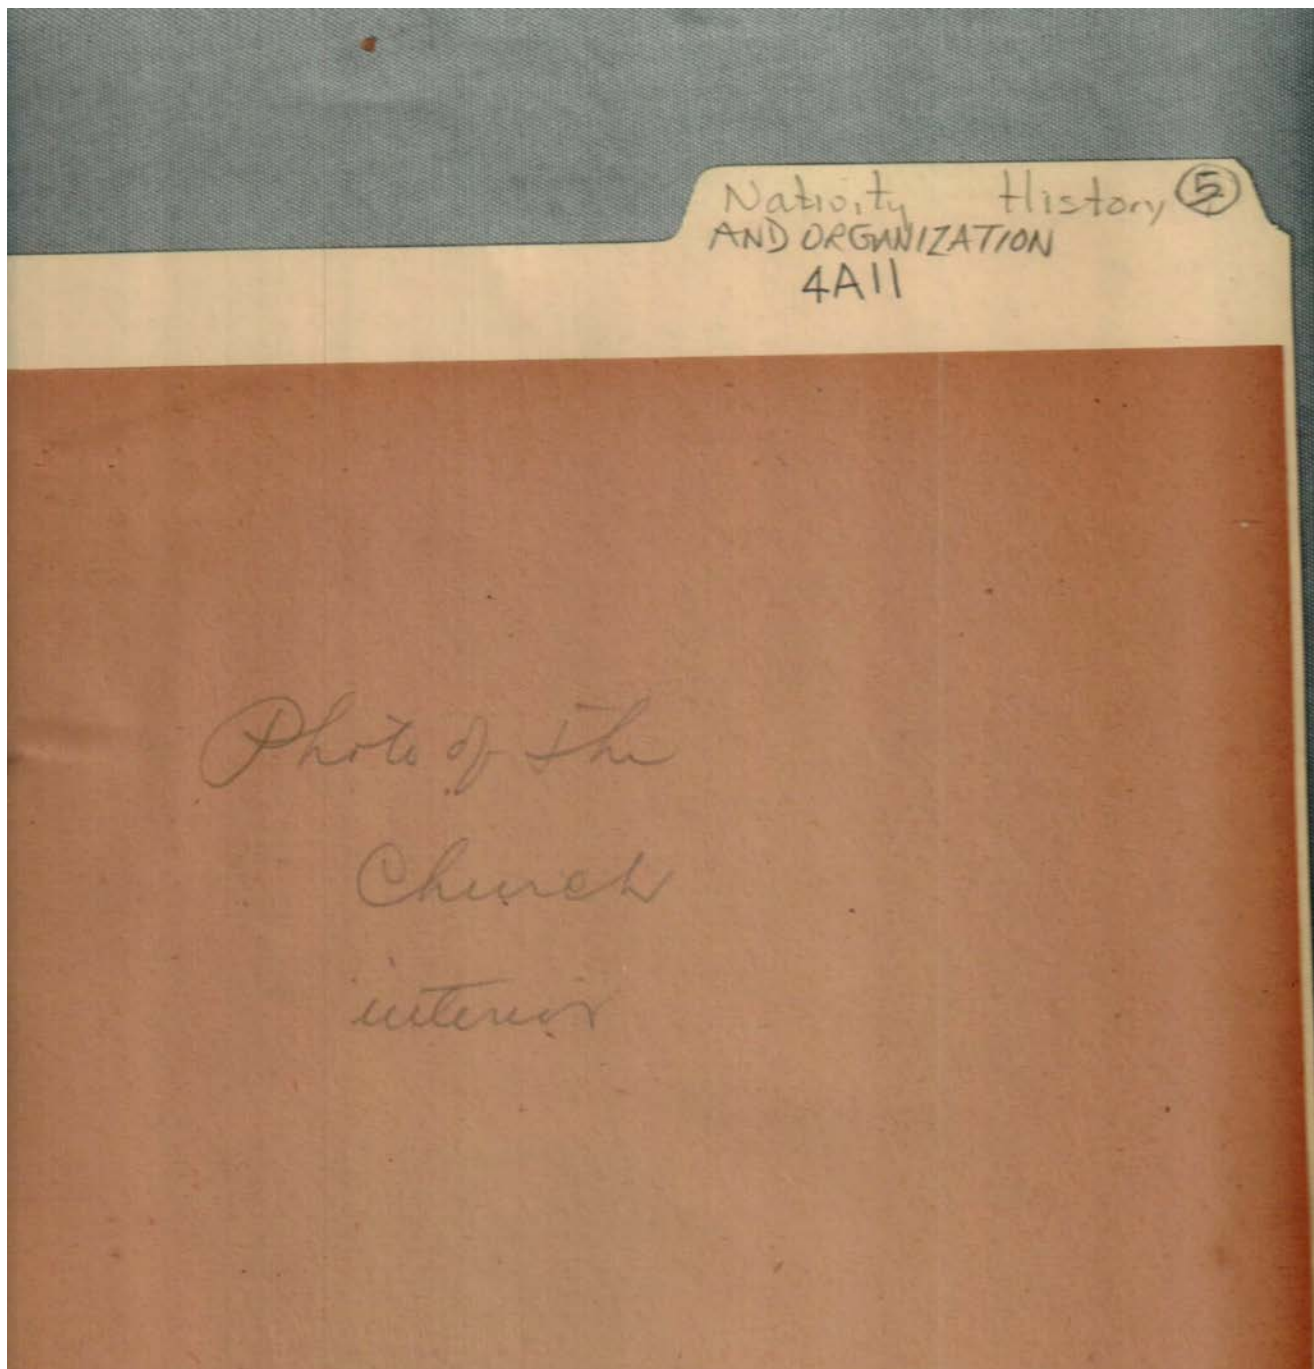 Nativity History 5
AND ORGANIZATION
4A11
Photo of the
Church
interior